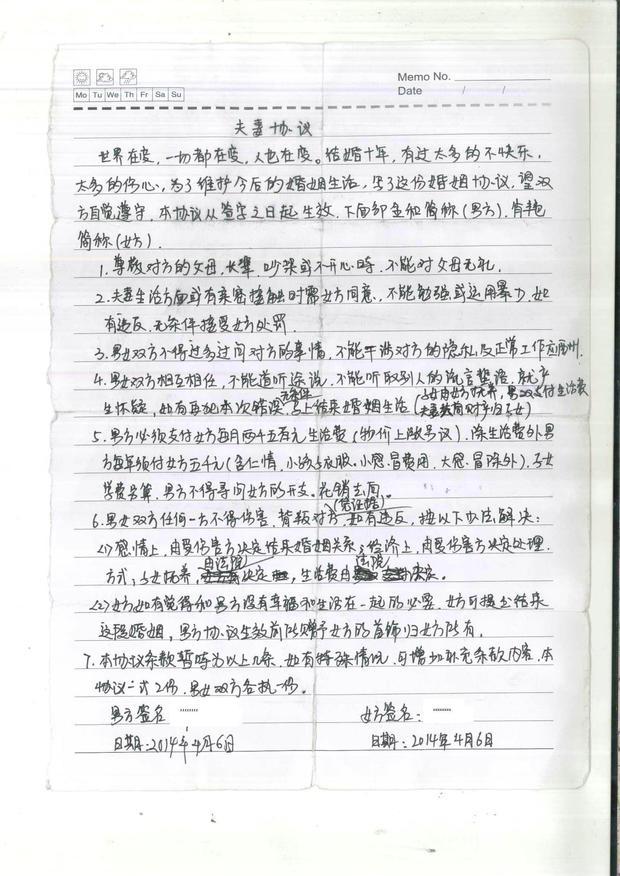 Memo No.
Mo Tu We Th Fr Sa Su
Date / /
夫妻协议
世界在变，一切都在变，人也在变。结婚十年，有过太多的不快乐，
太多的伤心，为了维护今后的婚姻生活，写了这份婚姻协议，望双
方自觉遵守。本协议从签字之日起生效，下面邹金和简称(男方)，肖艳
简称(女方)．
1、尊敬对方的父母，长辈，吵架或不开心时，不能对父母无礼．
2、夫妻生活方面或有亲密接触时需女方同意，不能勉强或运用暴力．如
有违反，无条件接受女方处罚．
3、男女双方不得过多过问对方的事情，不能干涉对方的隐私及正常工作
4、男女双方相互相任，不能道听途说，不能听取别人的流言蜚语，就产
无条件
子女由女方抚养，男双支付生活费
生怀疑，如有再犯本次错误，马上结束婚姻生活(夫妻教育财产归子女)
5、男方必须支付女方每月两千五百元生活费(物价上涨另议)．除生活费外男
方每年须付女方五千元(含仁情，小孩子衣服，小感冒费用，大感冒除外)，子女
学费另算，男方不得寻问女方的开支。花销去向。
(凭证据)
6、男女双方任何一方不得伤害，背叛对方，如有违反，按以下办法解决：
(1) 感情上，由受伤害方决定结束婚姻关系；经济上，由受伤害方决定处理．
由法院 法院
方式，子女抚养，决定，生活费由决定．
(2) 女方如有觉得和男方没有幸福和生活在一起的必要，女方可提出结束
这段婚姻，男方协议生效前所赠予女方的首饰归女方所有．
7、本协议条款暂时为以上几条，如有特殊情况，可增加补充条款内容，本
协议一式2份，男女双方各执一份。
男方签名 女方签名：
日期：2014年4月6日 日期：2014年4月6日